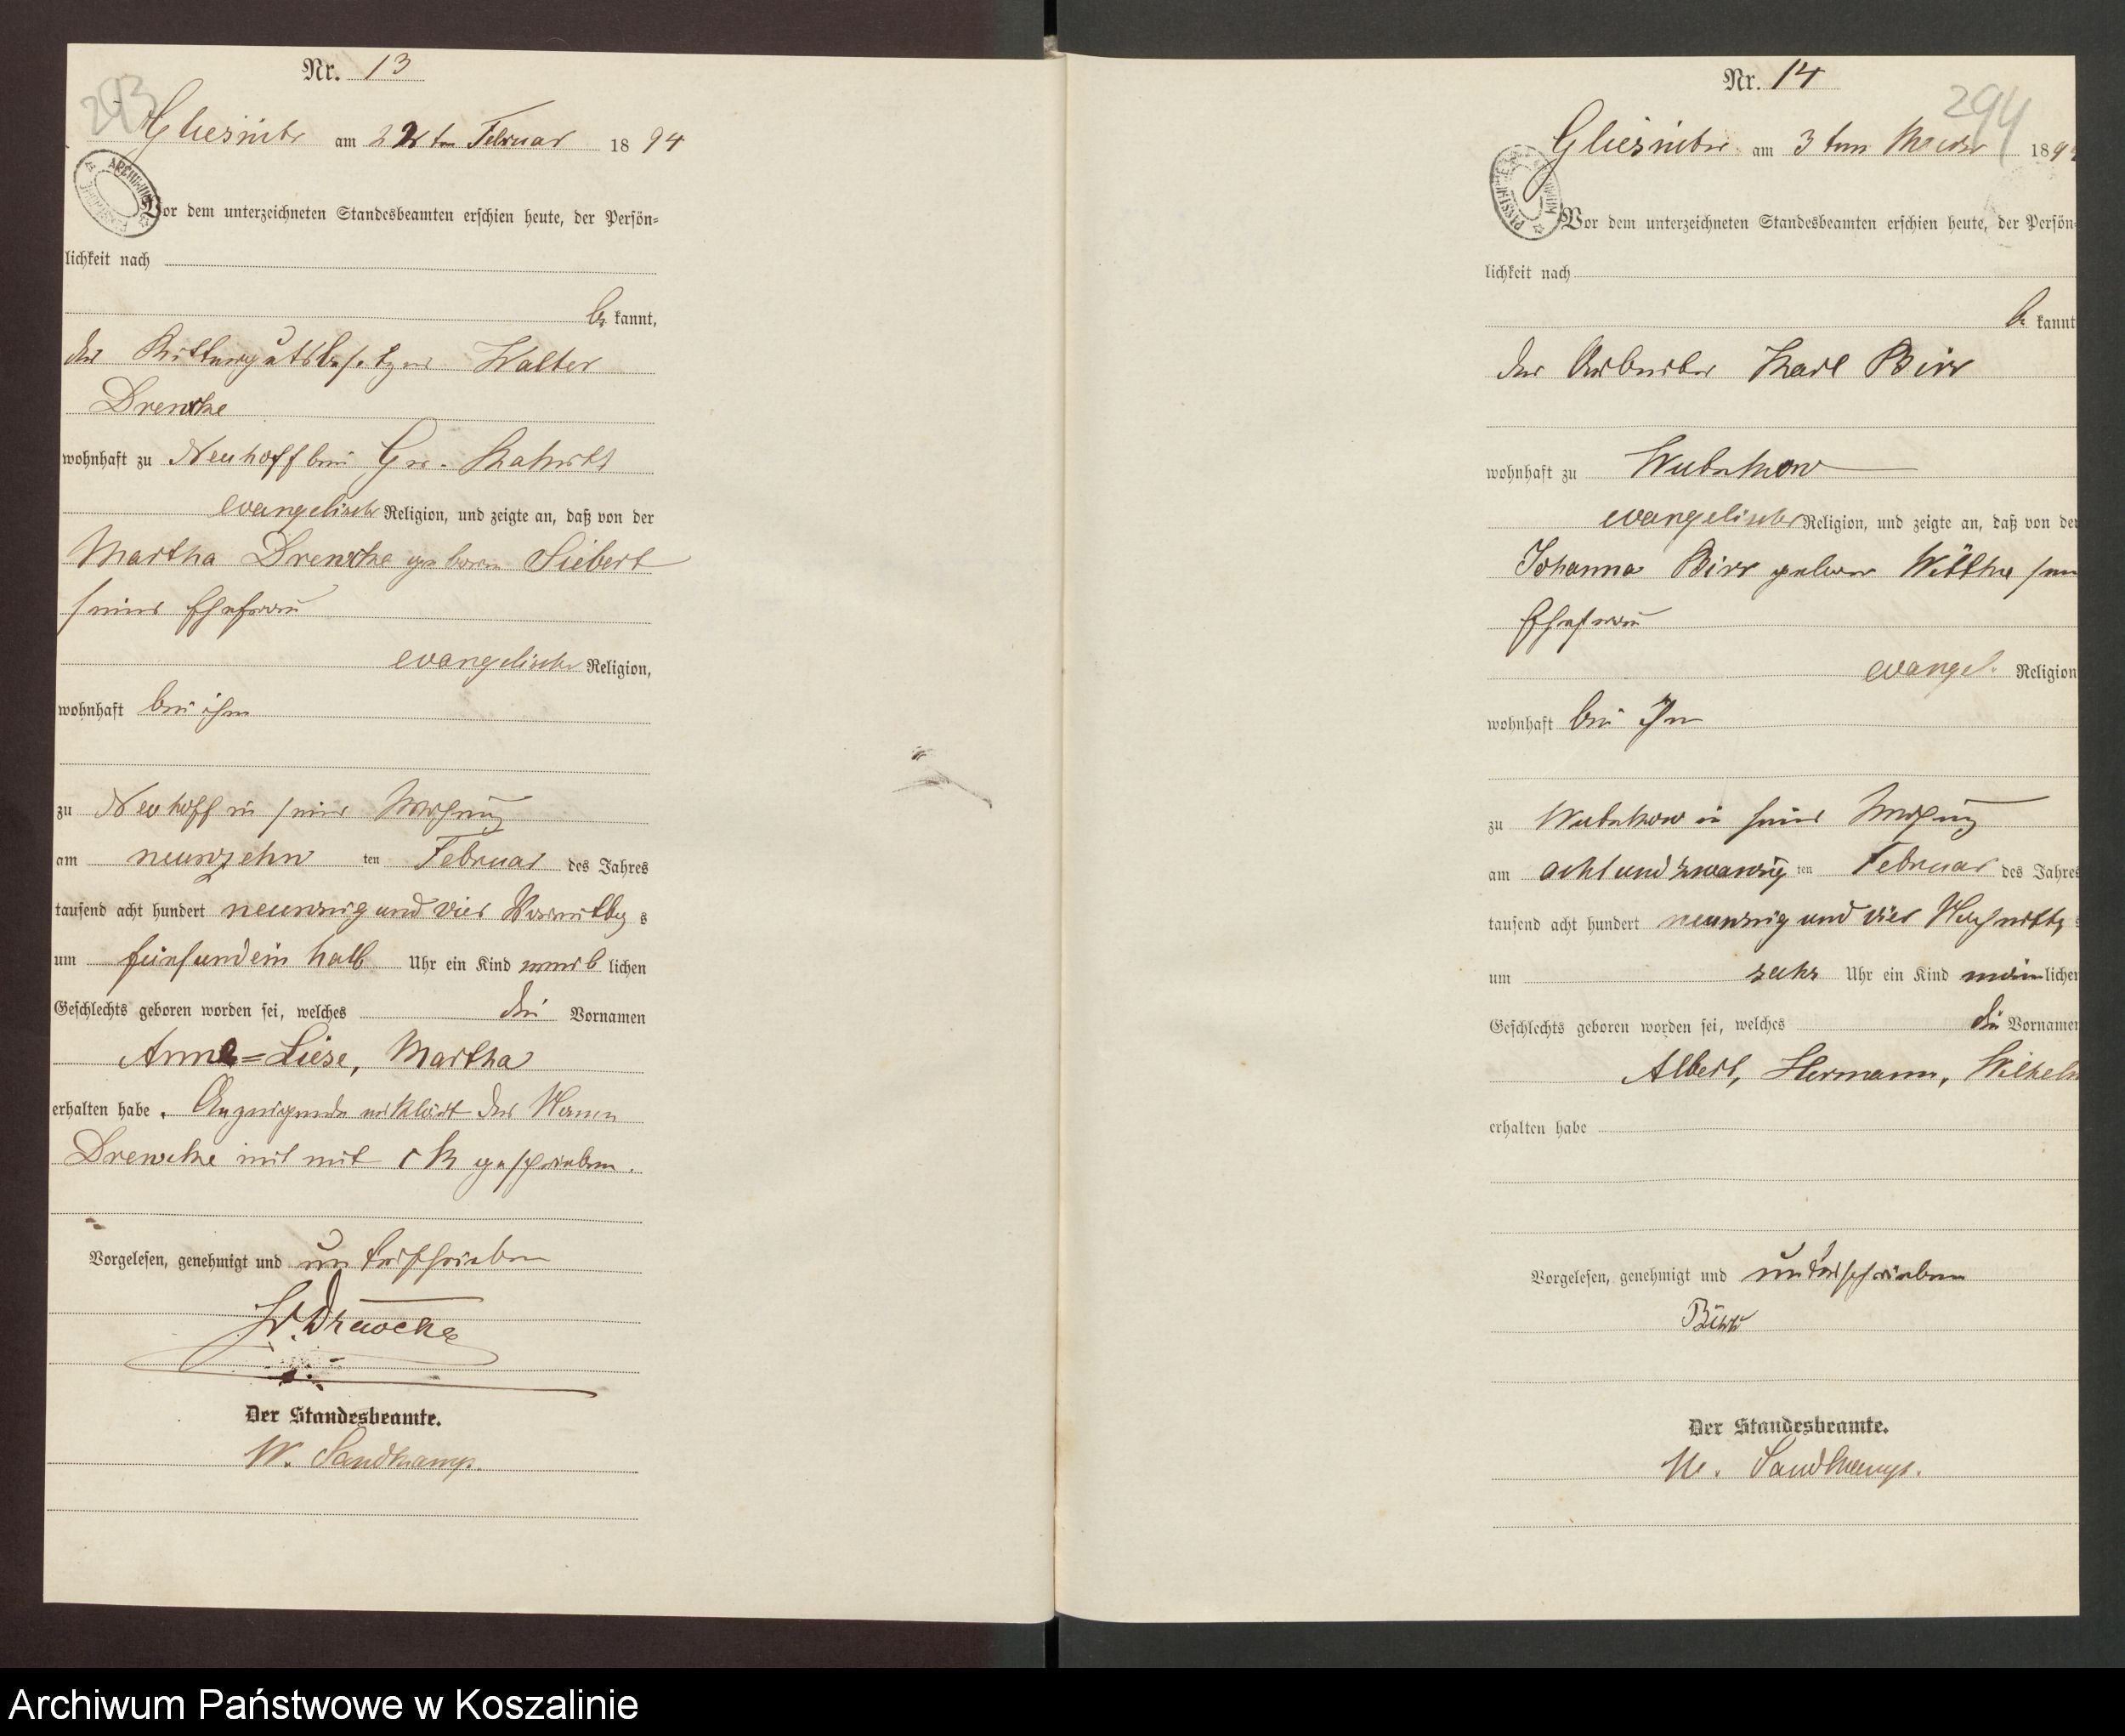 293
Nr. 13
am 22ten Februar 1894
ARCHIWUM
Vor dem unterzeichneten Standesbeamten erschien heute, der Persön=
lichkeit nach
be kannt,
der Rittergutsbesitzer Walter
Drewcke
wohnhaft zu Neuhoff bei Gr.
evangelischer Religion, und zeigte an, daß von der
Martha Drewcke geborene Siebert
seiner Ehefrau
evangelischer Religion,
wohnhaft bei ihm
zu Neuhoff in seiner Wohnung
am neunzehn ten Februar des Jahres
tausend acht hundert neunzig und vier Vormittag s
um fünf und ein halb Uhr ein Kind weib lichen
Geschlechts geboren worden sei, welches die Vornamen
Anne=Liese, Martha
erhalten habe. Anzeigende erklärt der Namen
Drewcke wird mit ck geschrieben.
Vorgelesen, genehmigt und unterschrieben
W. Drewcke
Der Standesbeamte.
W. Sandkamp.
294
Nr. 14
am 3ten März 189
Vor dem unterzeichneten Standesbeamten erschien heute, der Persön
lichkeit nach
be kannt
der Arbeiter Karl Birr
wohnhaft zu
evangelischer Religion, und zeigte an, daß von der
Johanna Birr geborene
Ehefrau
evangel. Religion
wohnhaft bei ihm
zu in seiner Wohnung
am acht und zwanzig ten Februar des Jahres
tausend acht hundert neunzig und vier Nachmittag
um sechs Uhr ein Kind männ lichen
Geschlechts geboren worden sei, welches die Vornamen
Albert, Hermann, Wilhelm
erhalten habe
Vorgelesen, genehmigt und unterschrieben
Birr
Der Standesbeamte.
W. Sandkamp.
Archiwum Państwowe w Koszalinie